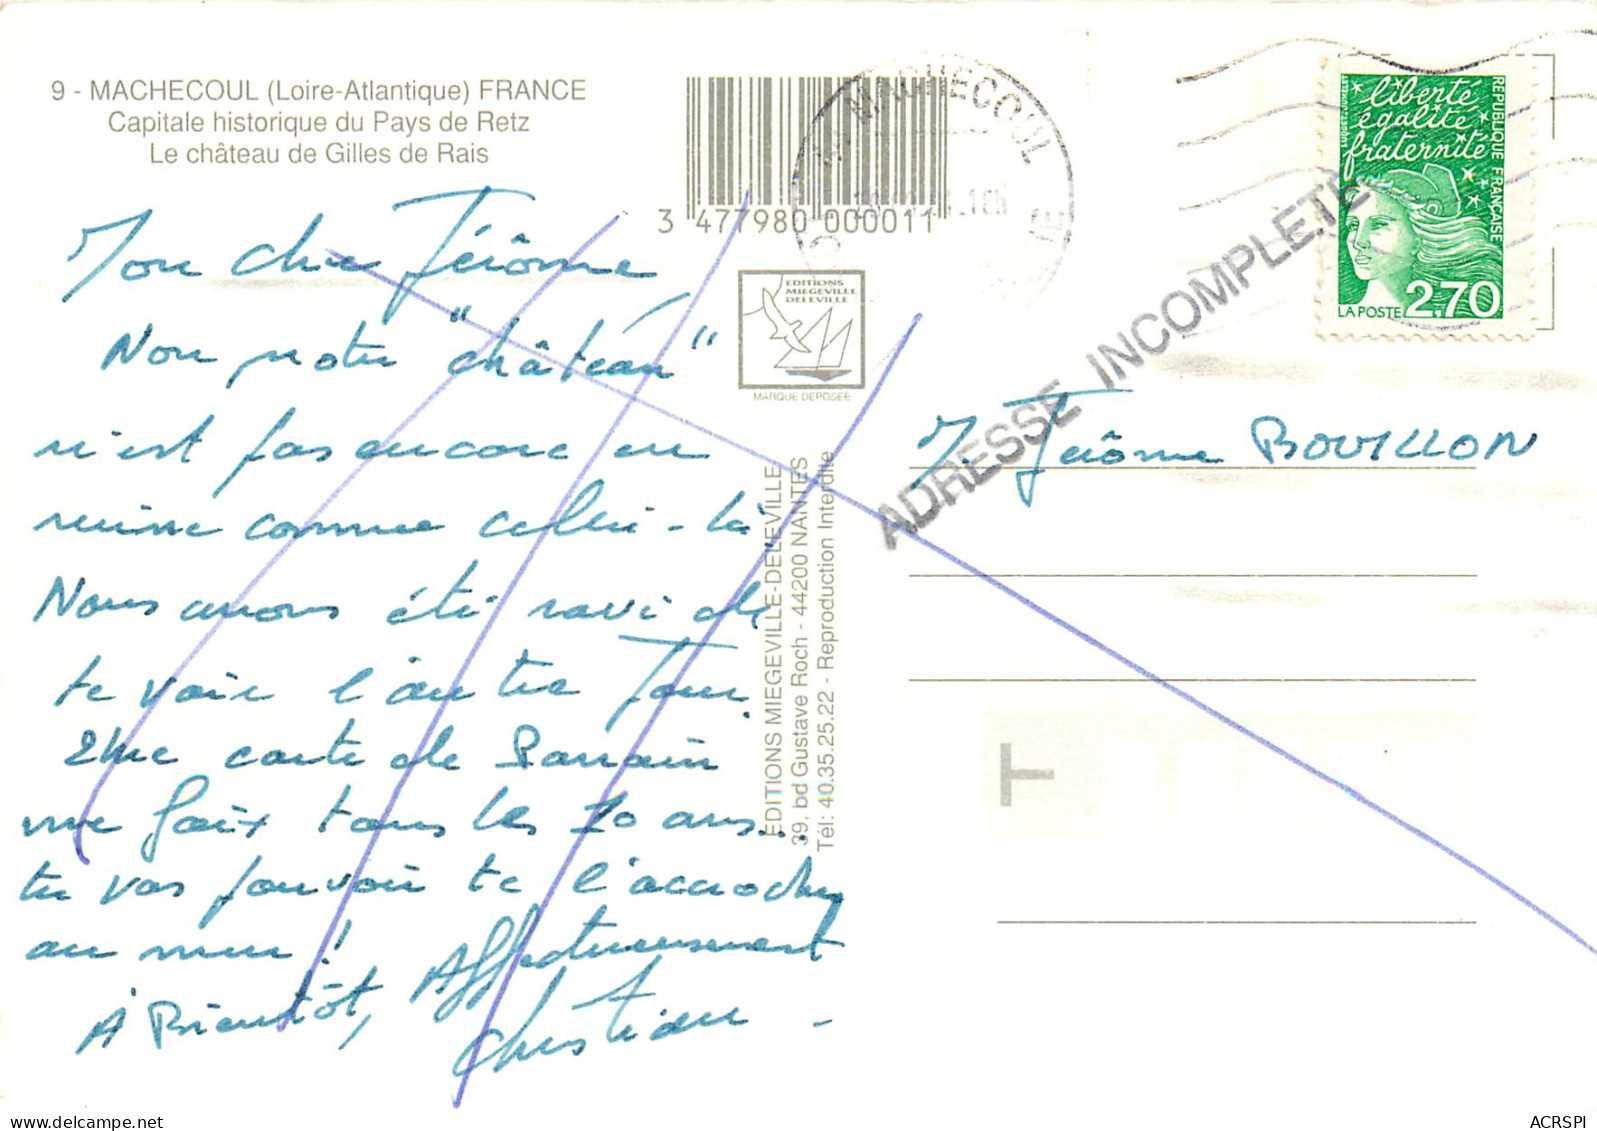 9 - MACHECOUL (Loire-Atlantique) FRANCE
Capitale historique du Pays de Retz
Le château de Gilles de Rais
3 477980 000011
MACHECOUL
EDITIONS
MIEGEVILLE
DELEVILLE
MARQUE DEPOSEE
liberté
égalité
fraternité
REPUBLIQUE FRANÇAISE
LA POSTE 2,70
ADRESSE INCOMPLETE
Mon cher Jérôme
Non notre "château"
n'est pas encore en
ruine comme celui-là
Nous avons été ravi de
te voir l'autre jour
2ème carte de Parrain
une fois tous les 20 ans...
tu vas pouvoir te l'accrocher
au mur !
A Bientôt, Affectueusement
Christian -
M. Jérôme BOUILLON
EDITIONS MIEGEVILLE-DELEVILLE
39, bd Gustave Roch - 44200 NANTES
Tél: 40.35.25.22 - Reproduction Interdite
T
ACRSPI